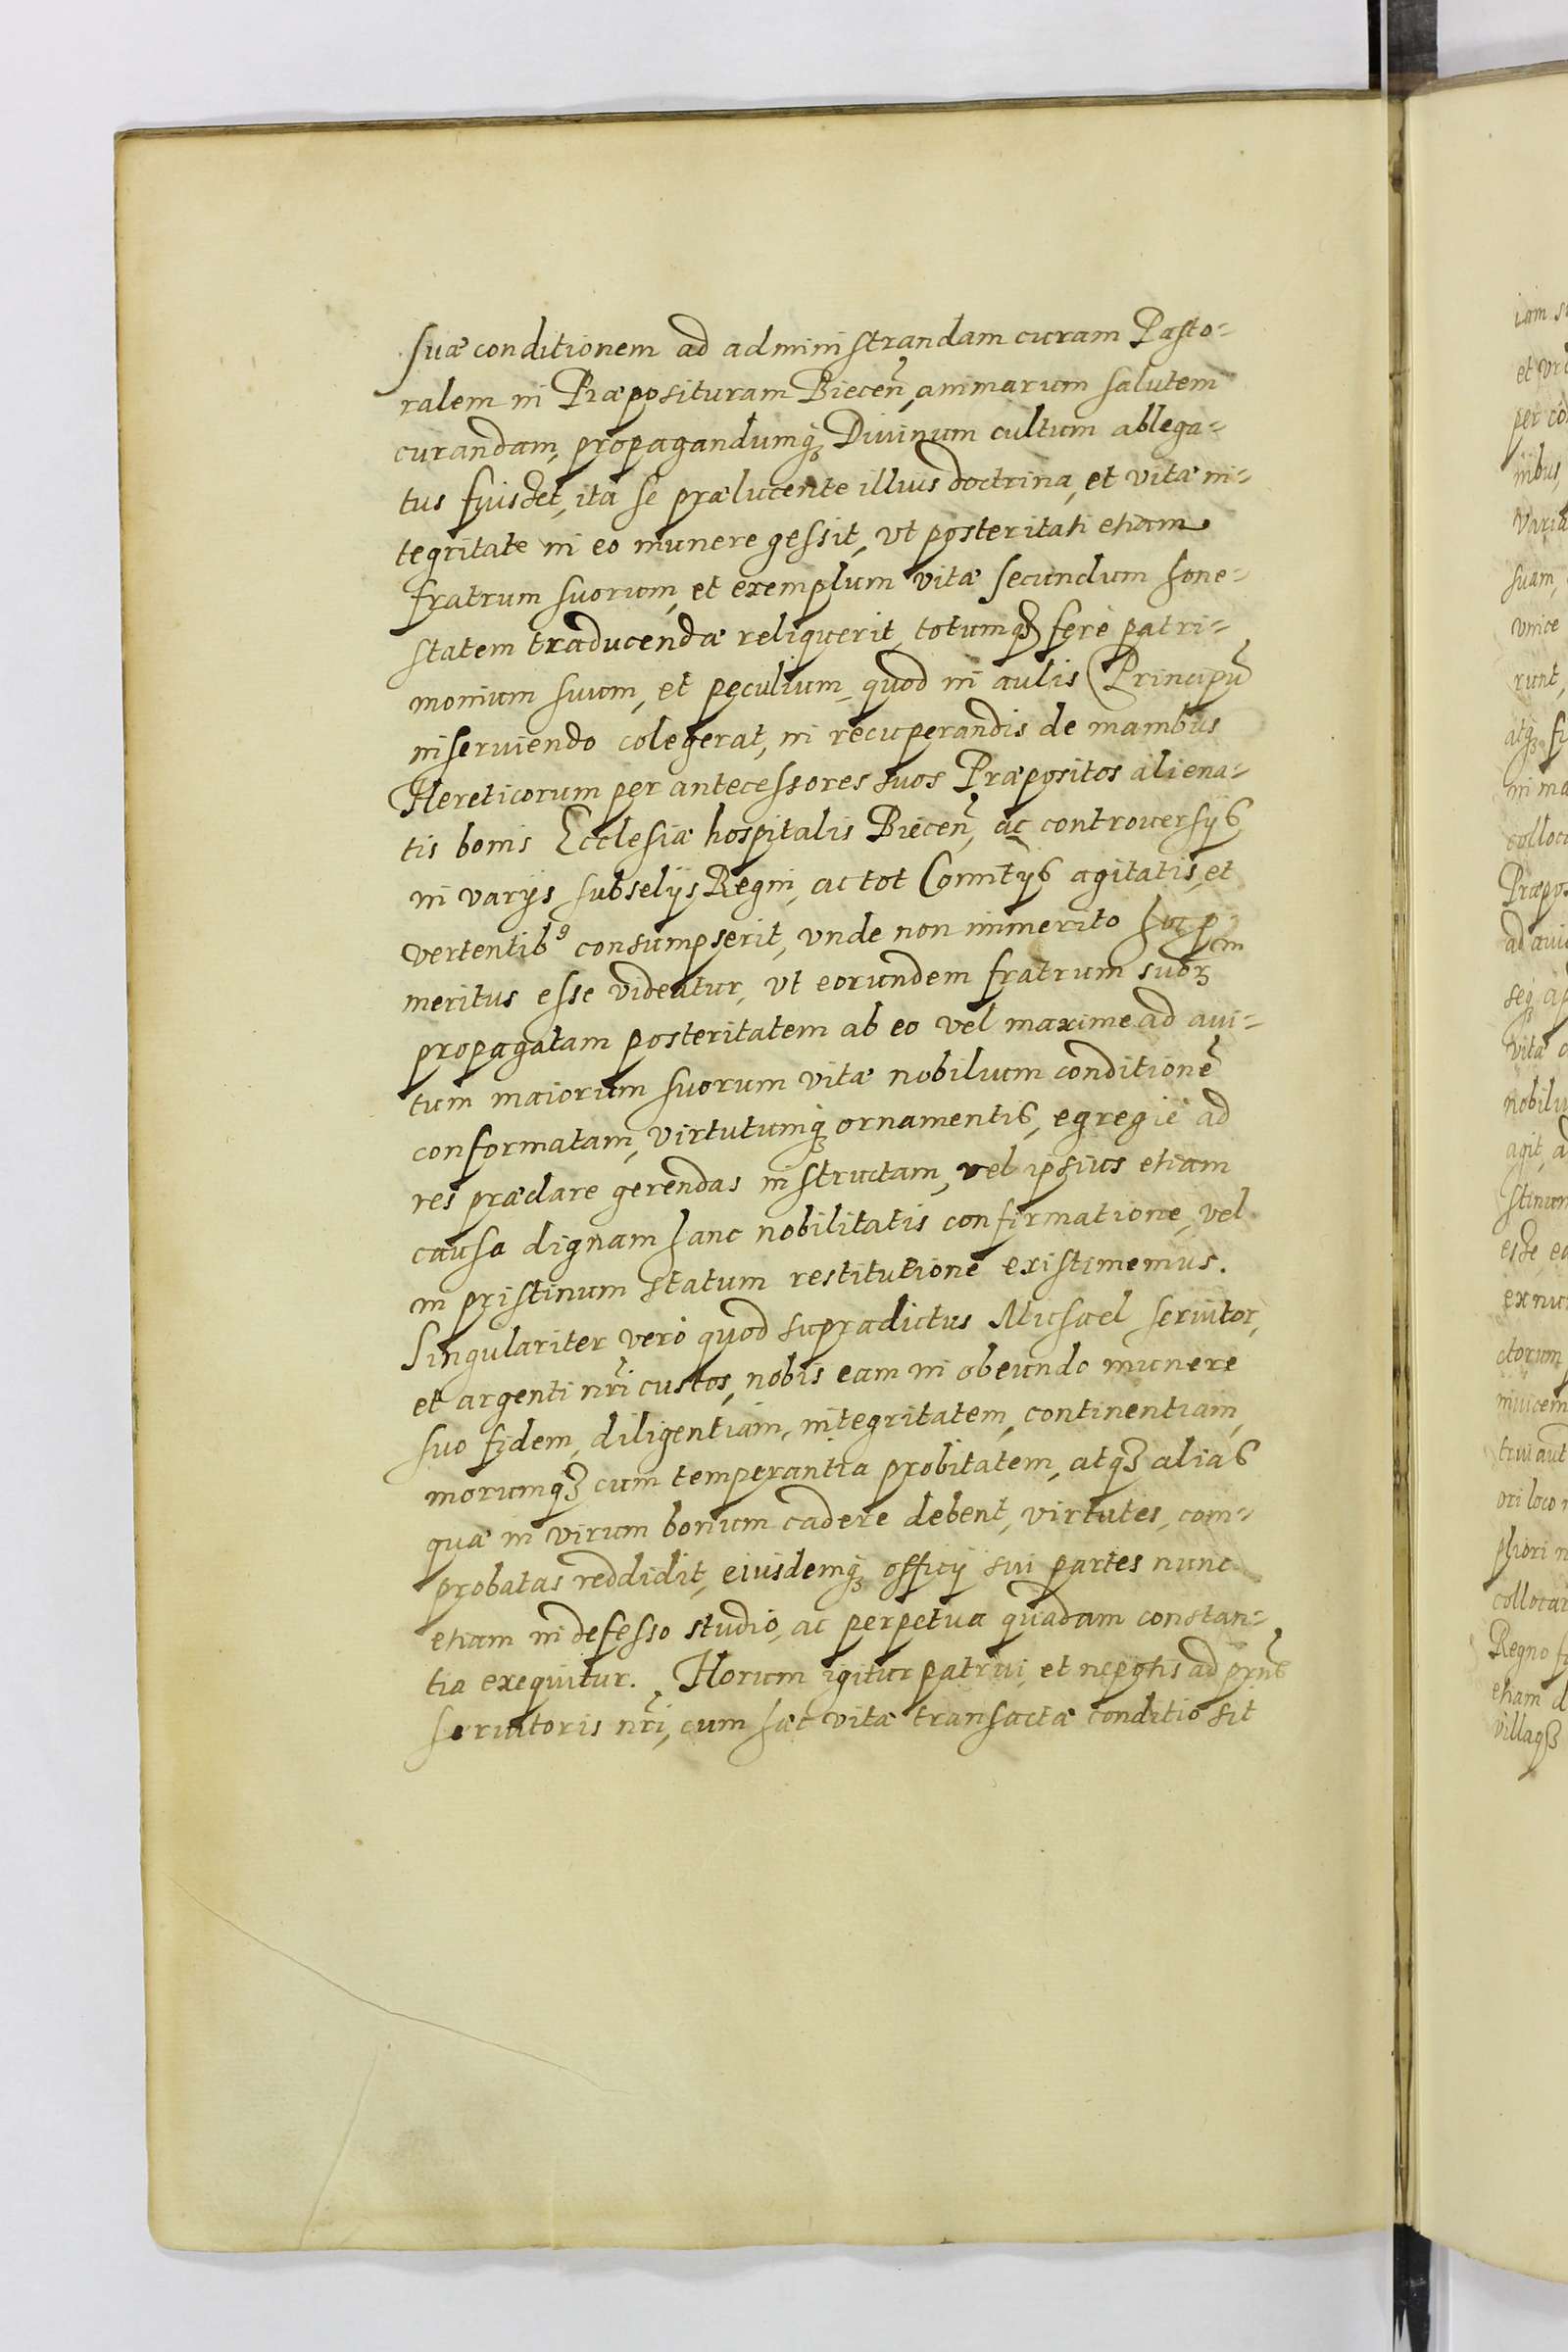 suæ conditionem ad administrandam curam Pasto-
ralem in Præposituram Biecen̄, animarum salutem
curandam, propagandumq̃ Diuinum cultum ablega-
tus fuisset, ita se prælucente illius doctrina, et vitæ in-
tegritate in eo munere gessit, vt posteritati etiam
fratrum suorum, et exemplum vitæ secundum hone-
statem traducendæ reliquerit, totumq̃ ferè patri-
monium suum, et peculium, quod in aulis Principū
inseruiendo colegerat, in recuperandis de manibus
Hereticorum per antecessores suos Præpositos aliena-
tis bonis Ecclesiæ hospitalis Biecen̄, ac controuersijs
in varijs subselijs Regni, ac tot Comitijs agitatis, et
vertentibꝰ consumpserit, vnde non immerito
meritus esse videatur, vt eorundem fratrum suoꝝ
propagatam posteritatem ab eo vel maxime ad aui-
tum maiorum suorum vitæ nobilium conditionē
conformatam, virtutumq̃ ornamentis, egregiè ad
res præclare gerendas instructam, vel ipsius etiam
causa dignam hanc nobilitatis confirmationē, vel
in pristinum statum restitutionē existimemus.
Singulariter verò quod supradictus Michael seruitor,
et argenti nr̃i custos, nobis eam in obeundo munere
suo fidem, diligentiam, integritatem, continentiam,
morumq̃ cum temperantia probitatem, atq̃ alias
quæ in virum bonum cadere debent, virtutes, com-
probatas reddidit, eiusdemq̃ officij sui partes nunc
etiam indefesso studio, ac perpetua quadam constan-
tia exequitur. Horum igitur patrui, et nepotis ad pr̃ns
seruitoris nr̃i, cum hæc vitæ transactæ conditio sit